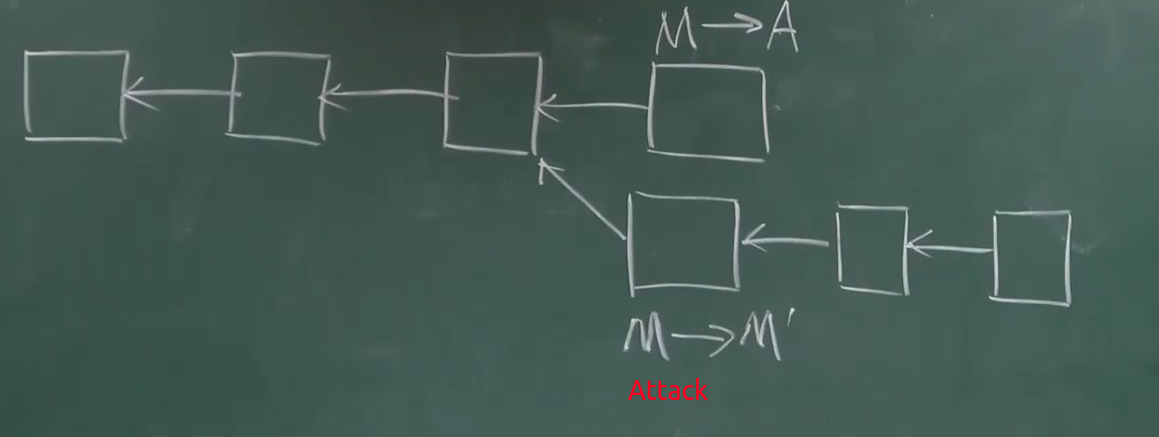 M → A
M → M'
Attack